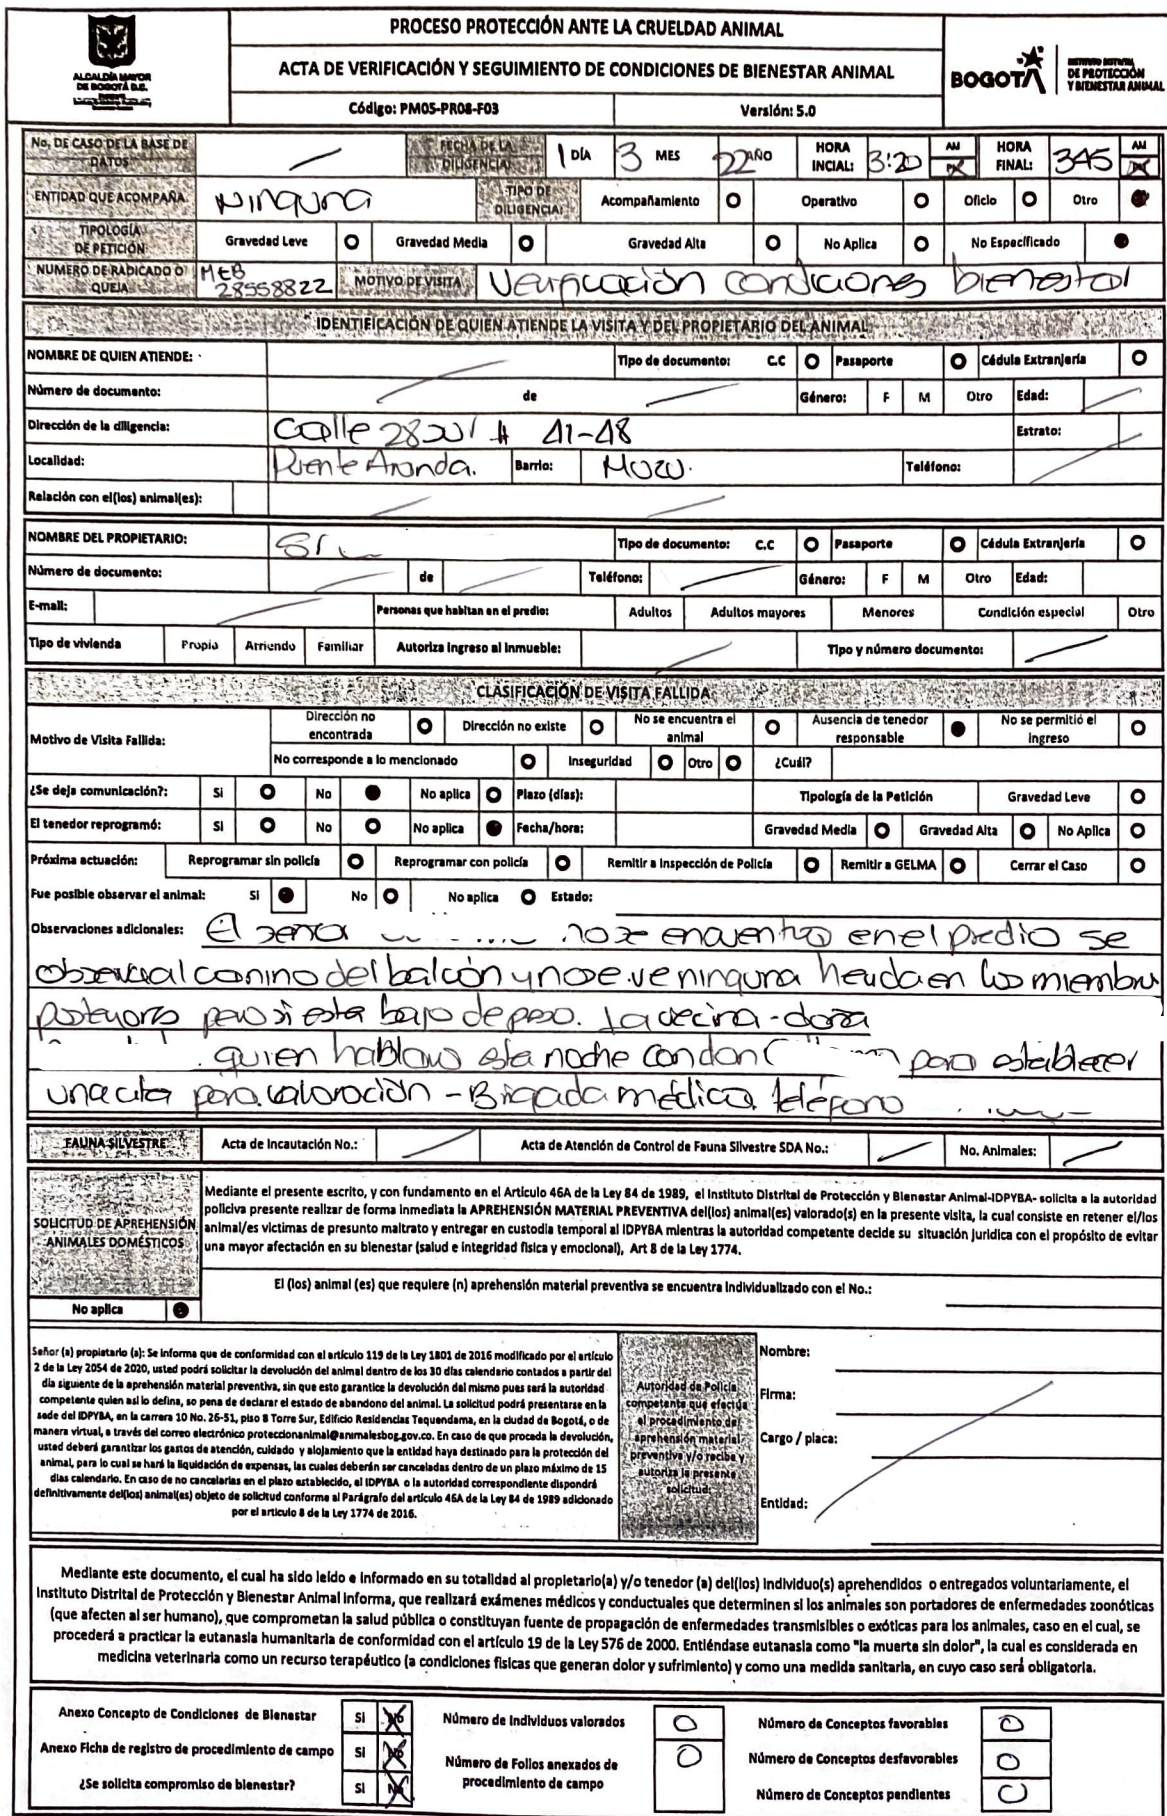 ALCALDÍA MAYOR
DE BOGOTÁ D.C.
PROCESO PROTECCIÓN ANTE LA CRUELDAD ANIMAL
ACTA DE VERIFICACIÓN Y SEGUIMIENTO DE CONDICIONES DE BIENESTAR ANIMAL
Código: PM05-PR08-F03 Versión: 5.0
BOGOTÁ
INSTITUTO DISTRITAL
DE PROTECCIÓN
Y BIENESTAR ANIMAL
No. DE CASO DE LA BASE DE DATOS FECHA DE LA DILIGENCIA: 1 DÍA 3 MES 22 AÑO HORA INCIAL: 3:20 AM HORA FINAL: 345 AM
ENTIDAD QUE ACOMPAÑA Ninguna TIPO DE DILIGENCIA: Acompañamiento Operativo Oficio Otro
TIPOLOGÍA DE PETICIÓN Gravedad Leve Gravedad Media Gravedad Alta No Aplica No Especificado
NUMERO DE RADICADO O QUEJA MEB 28558822 MOTIVO DE VISITA Verificación condiciones bienestar
IDENTIFICACIÓN DE QUIEN ATIENDE LA VISITA Y DEL PROPIETARIO DEL ANIMAL
NOMBRE DE QUIEN ATIENDE: Tipo de documento: C.C Pasaporte Cédula Extranjería
Número de documento: de Género: F M Otro Edad:
Dirección de la diligencia: Calle 28 sur # 41-48 Estrato:
Localidad: Puente Aranda. Barrio: Muzu. Teléfono:
Relación con el(los) animal(es):
NOMBRE DEL PROPIETARIO: Tipo de documento: C.C Pasaporte Cédula Extranjería
Número de documento: de Teléfono: Género: F M Otro Edad:
E-mail: Personas que habitan en el predio: Adultos Adultos mayores Menores Condición especial Otro
Tipo de vivienda Propia Arriendo Familiar Autoriza Ingreso al inmueble: Tipo y número documento:
CLASIFICACIÓN DE VISITA FALLIDA
Motivo de Visita Fallida: Dirección no encontrada Dirección no existe No se encuentra el animal Ausencia de tenedor responsable No se permitió el ingreso
No corresponde a lo mencionado Inseguridad Otro ¿Cuál?
¿Se deja comunicación?: Si No No aplica Plazo (días): Tipología de la Petición Gravedad Leve
El tenedor reprogramó: SI No No aplica Fecha/hora: Gravedad Media Gravedad Alta No Aplica
Próxima actuación: Reprogramar sin policía Reprogramar con policía Remitir a Inspección de Policía Remitir a GELMA Cerrar el Caso
Fue posible observar el animal: SI No No aplica Estado:
Observaciones adicionales: El señor no se encuentra en el predio se
observa al canino del balcón y no se ve ninguna herida en los miembros
posteriores pero si esta bajo de peso. La vecina - doña
quien hablara esta noche con don para establecer
una cita para valoración - Brigada médica. teléfono
FAUNA SILVESTRE Acta de Incautación No.: Acta de Atención de Control de Fauna Silvestre SDA No.: No. Animales:
SOLICITUD DE APREHENSIÓN
ANIMALES DOMÉSTICOS
No aplica
Mediante el presente escrito, y con fundamento en el Artículo 46A de la Ley 84 de 1989, el Instituto Distrital de Protección y Bienestar Animal-IDPYBA- solicita a la autoridad
policiva presente realizar de forma inmediata la APREHENSIÓN MATERIAL PREVENTIVA del(los) animal(es) valorado(s) en la presente visita, la cual consiste en retener el/los
animal/es victimas de presunto maltrato y entregar en custodia temporal al IDPYBA mientras la autoridad competente decide su situación jurídica con el propósito de evitar
una mayor afectación en su bienestar (salud e integridad física y emocional), Art 8 de la Ley 1774.
El (los) animal (es) que requiere (n) aprehensión material preventiva se encuentra individualizado con el No.:
Señor (a) propietario (a): Se informa que de conformidad con el artículo 119 de la Ley 1801 de 2016 modificado por el artículo
2 de la Ley 2054 de 2020, usted podrá solicitar la devolución del animal dentro de los 30 días calendario contados a partir del
día siguiente de la aprehensión material preventiva, sin que esto garantice la devolución del mismo pues será la autoridad
competente quien así lo defina, so pena de declarar el estado de abandono del animal. La solicitud podrá presentarse en la
sede del IDPYBA, en la carrera 10 No. 26-51, piso 8 Torre Sur, Edificio Residencias Tequendama, en la ciudad de Bogotá, o de
manera virtual, a través del correo electrónico proteccionanimal@animalesbog.gov.co. En caso de que proceda la devolución,
usted deberá garantizar los gastos de atención, cuidado y alojamiento que la entidad haya destinado para la protección del
animal, para lo cual se hará la liquidación de expensas, las cuales deberán ser canceladas dentro de un plazo máximo de 15
días calendario. En caso de no cancelarlas en el plazo establecido, al IDPYBA o la autoridad correspondiente dispondrá
definitivamente del(los) animal(es) objeto de solicitud conforme al Parágrafo del artículo 46A de la Ley 84 de 1989 adicionado
por el artículo 8 de la Ley 1774 de 2016.
Autoridad de Policía
competente que efectúa
el procedimiento de
aprehensión material
preventiva y/o recibe y
autoriza la presente
solicitud:
Nombre:
Firma:
Cargo / placa:
Entidad:
Mediante este documento, el cual ha sido leído e informado en su totalidad al propietario(a) y/o tenedor (a) del(los) individuo(s) aprehendidos o entregados voluntariamente, el
Instituto Distrital de Protección y Bienestar Animal informa, que realizará exámenes médicos y conductuales que determinen si los animales son portadores de enfermedades zoonóticas
(que afecten al ser humano), que comprometan la salud pública o constituyan fuente de propagación de enfermedades transmisibles o exóticas para los animales, caso en el cual, se
procederá a practicar la eutanasia humanitaria de conformidad con el artículo 19 de la Ley 576 de 2000. Entiéndase eutanasia como "la muerte sin dolor", la cual es considerada en
medicina veterinaria como un recurso terapéutico (a condiciones físicas que generan dolor y sufrimiento) y como una medida sanitaria, en cuyo caso será obligatoria.
Anexo Concepto de Condiciones de Bienestar SI No Número de Individuos valorados 0 Número de Conceptos favorables 0
Anexo Ficha de registro de procedimiento de campo SI No Número de Folios anexados de procedimiento de campo 0 Número de Conceptos desfavorables 0
¿Se solicita compromiso de bienestar? SI No Número de Conceptos pendientes 0